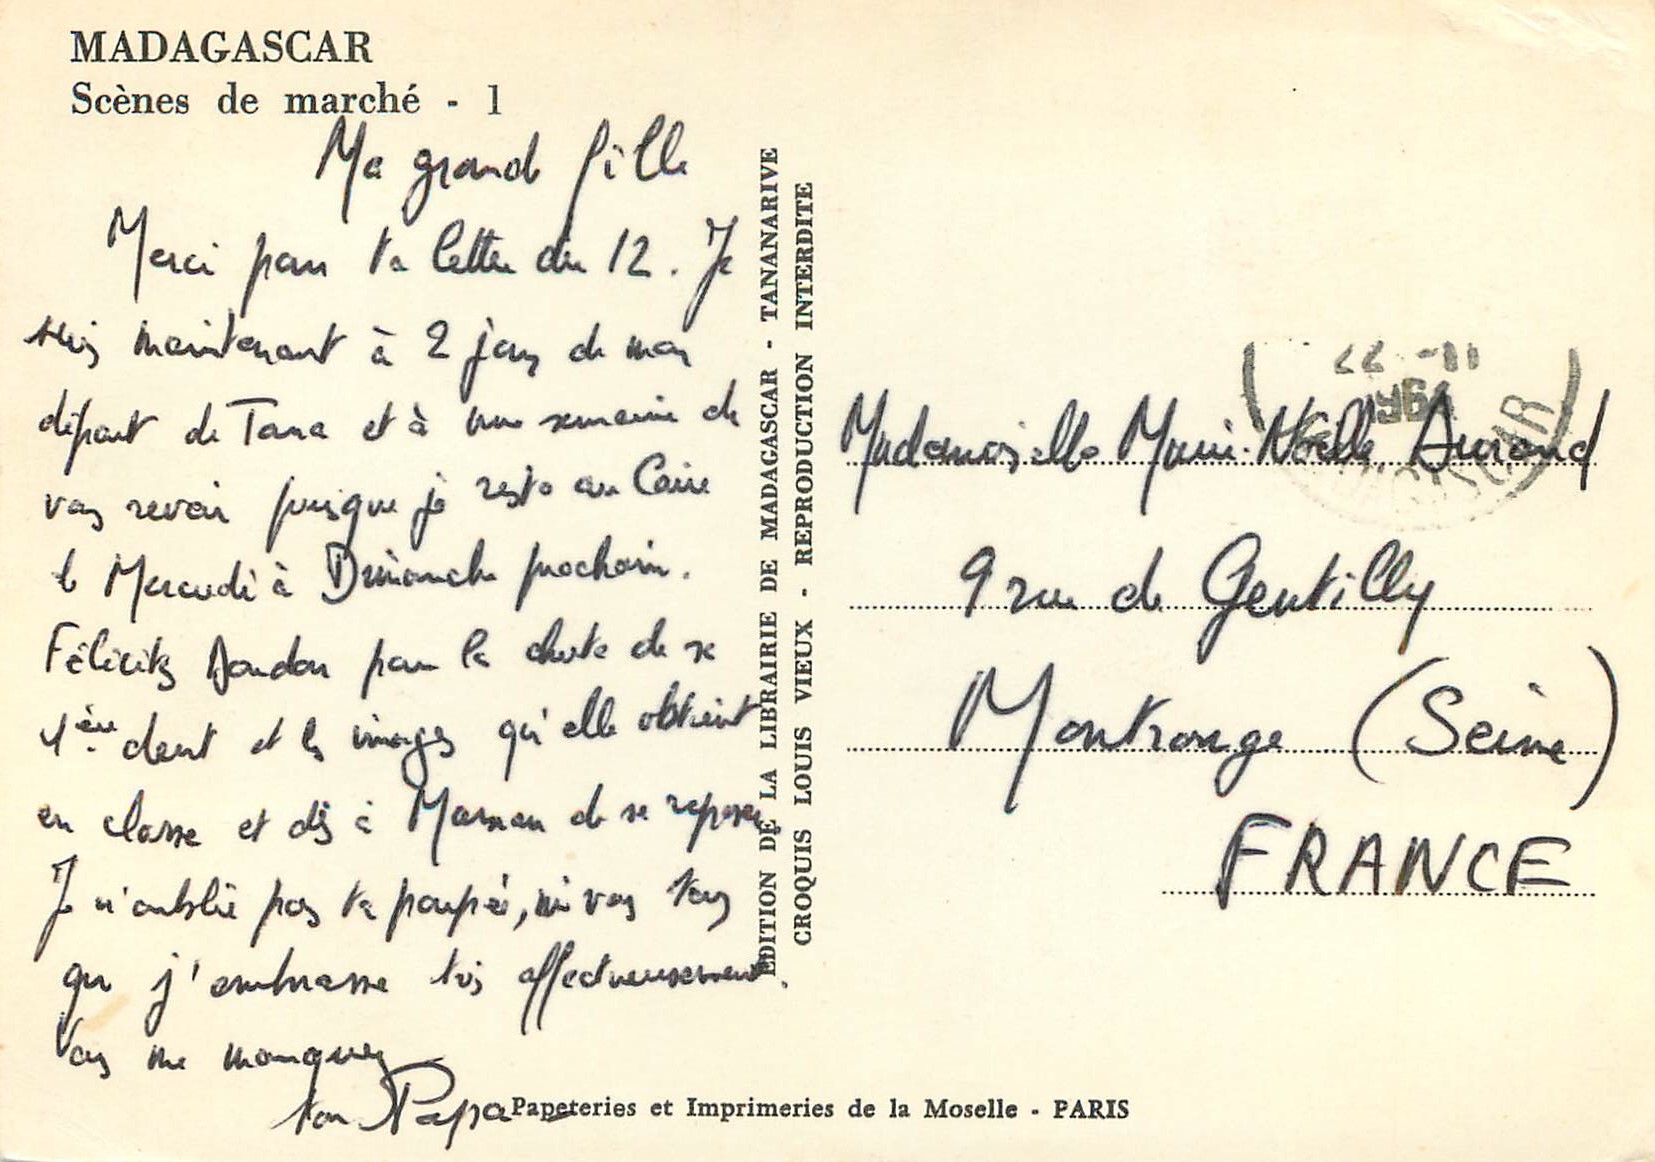 MADAGASCAR
Scènes de marché - 1
Ma grande fille
Merci pour ta lettre du 12. Je
suis maintenant à 2 jours de mon
départ de Tana et à une semaine de
vous revoir puisque je reste au Caire
le Mercredi à Dimanche prochain.
Félicite Doudou pour la chute de sa
1ère dent et les images qu'elle obtient
en classe et dis à Maman de se reposer
Je n'oublie pas ta poupée, ni vous tous
que j'embrasse très affectueusement.
Vous me manquez
ton Papa
EDITION DE LA LIBRAIRIE DE MADAGASCAR - TANANARIVE
CROQUIS LOUIS VIEUX - REPRODUCTION INTERDITE
Mademoiselle Marie-Noëlle Durand
9 rue de Gentilly
Montrouge (Seine)
FRANCE
Papeteries et Imprimeries de la Moselle - PARIS